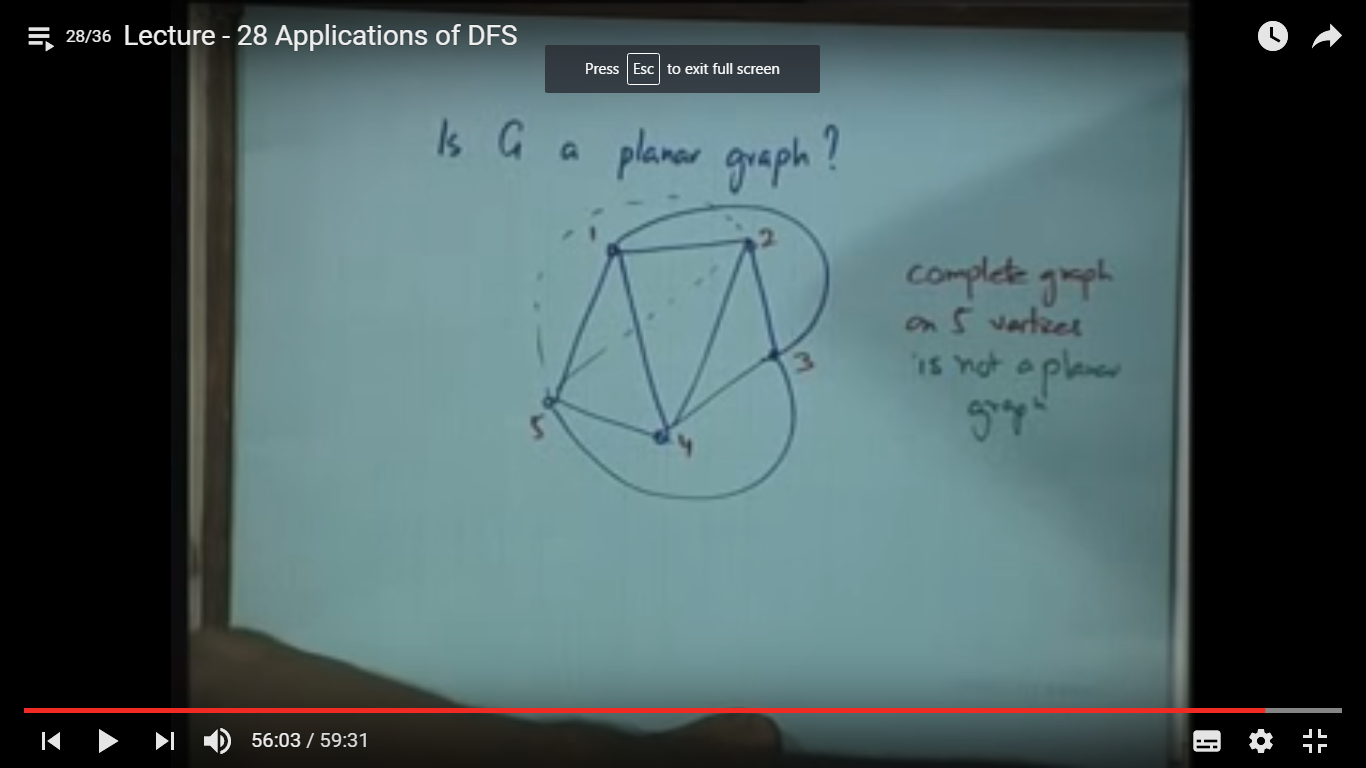 28/36 Lecture - 28 Applications of DFS
Press Esc to exit full screen
Is G a planar graph?
1
2
complete graph
on 5 vertices
3
is not a planar
graph
5
4
56:03 / 59:31